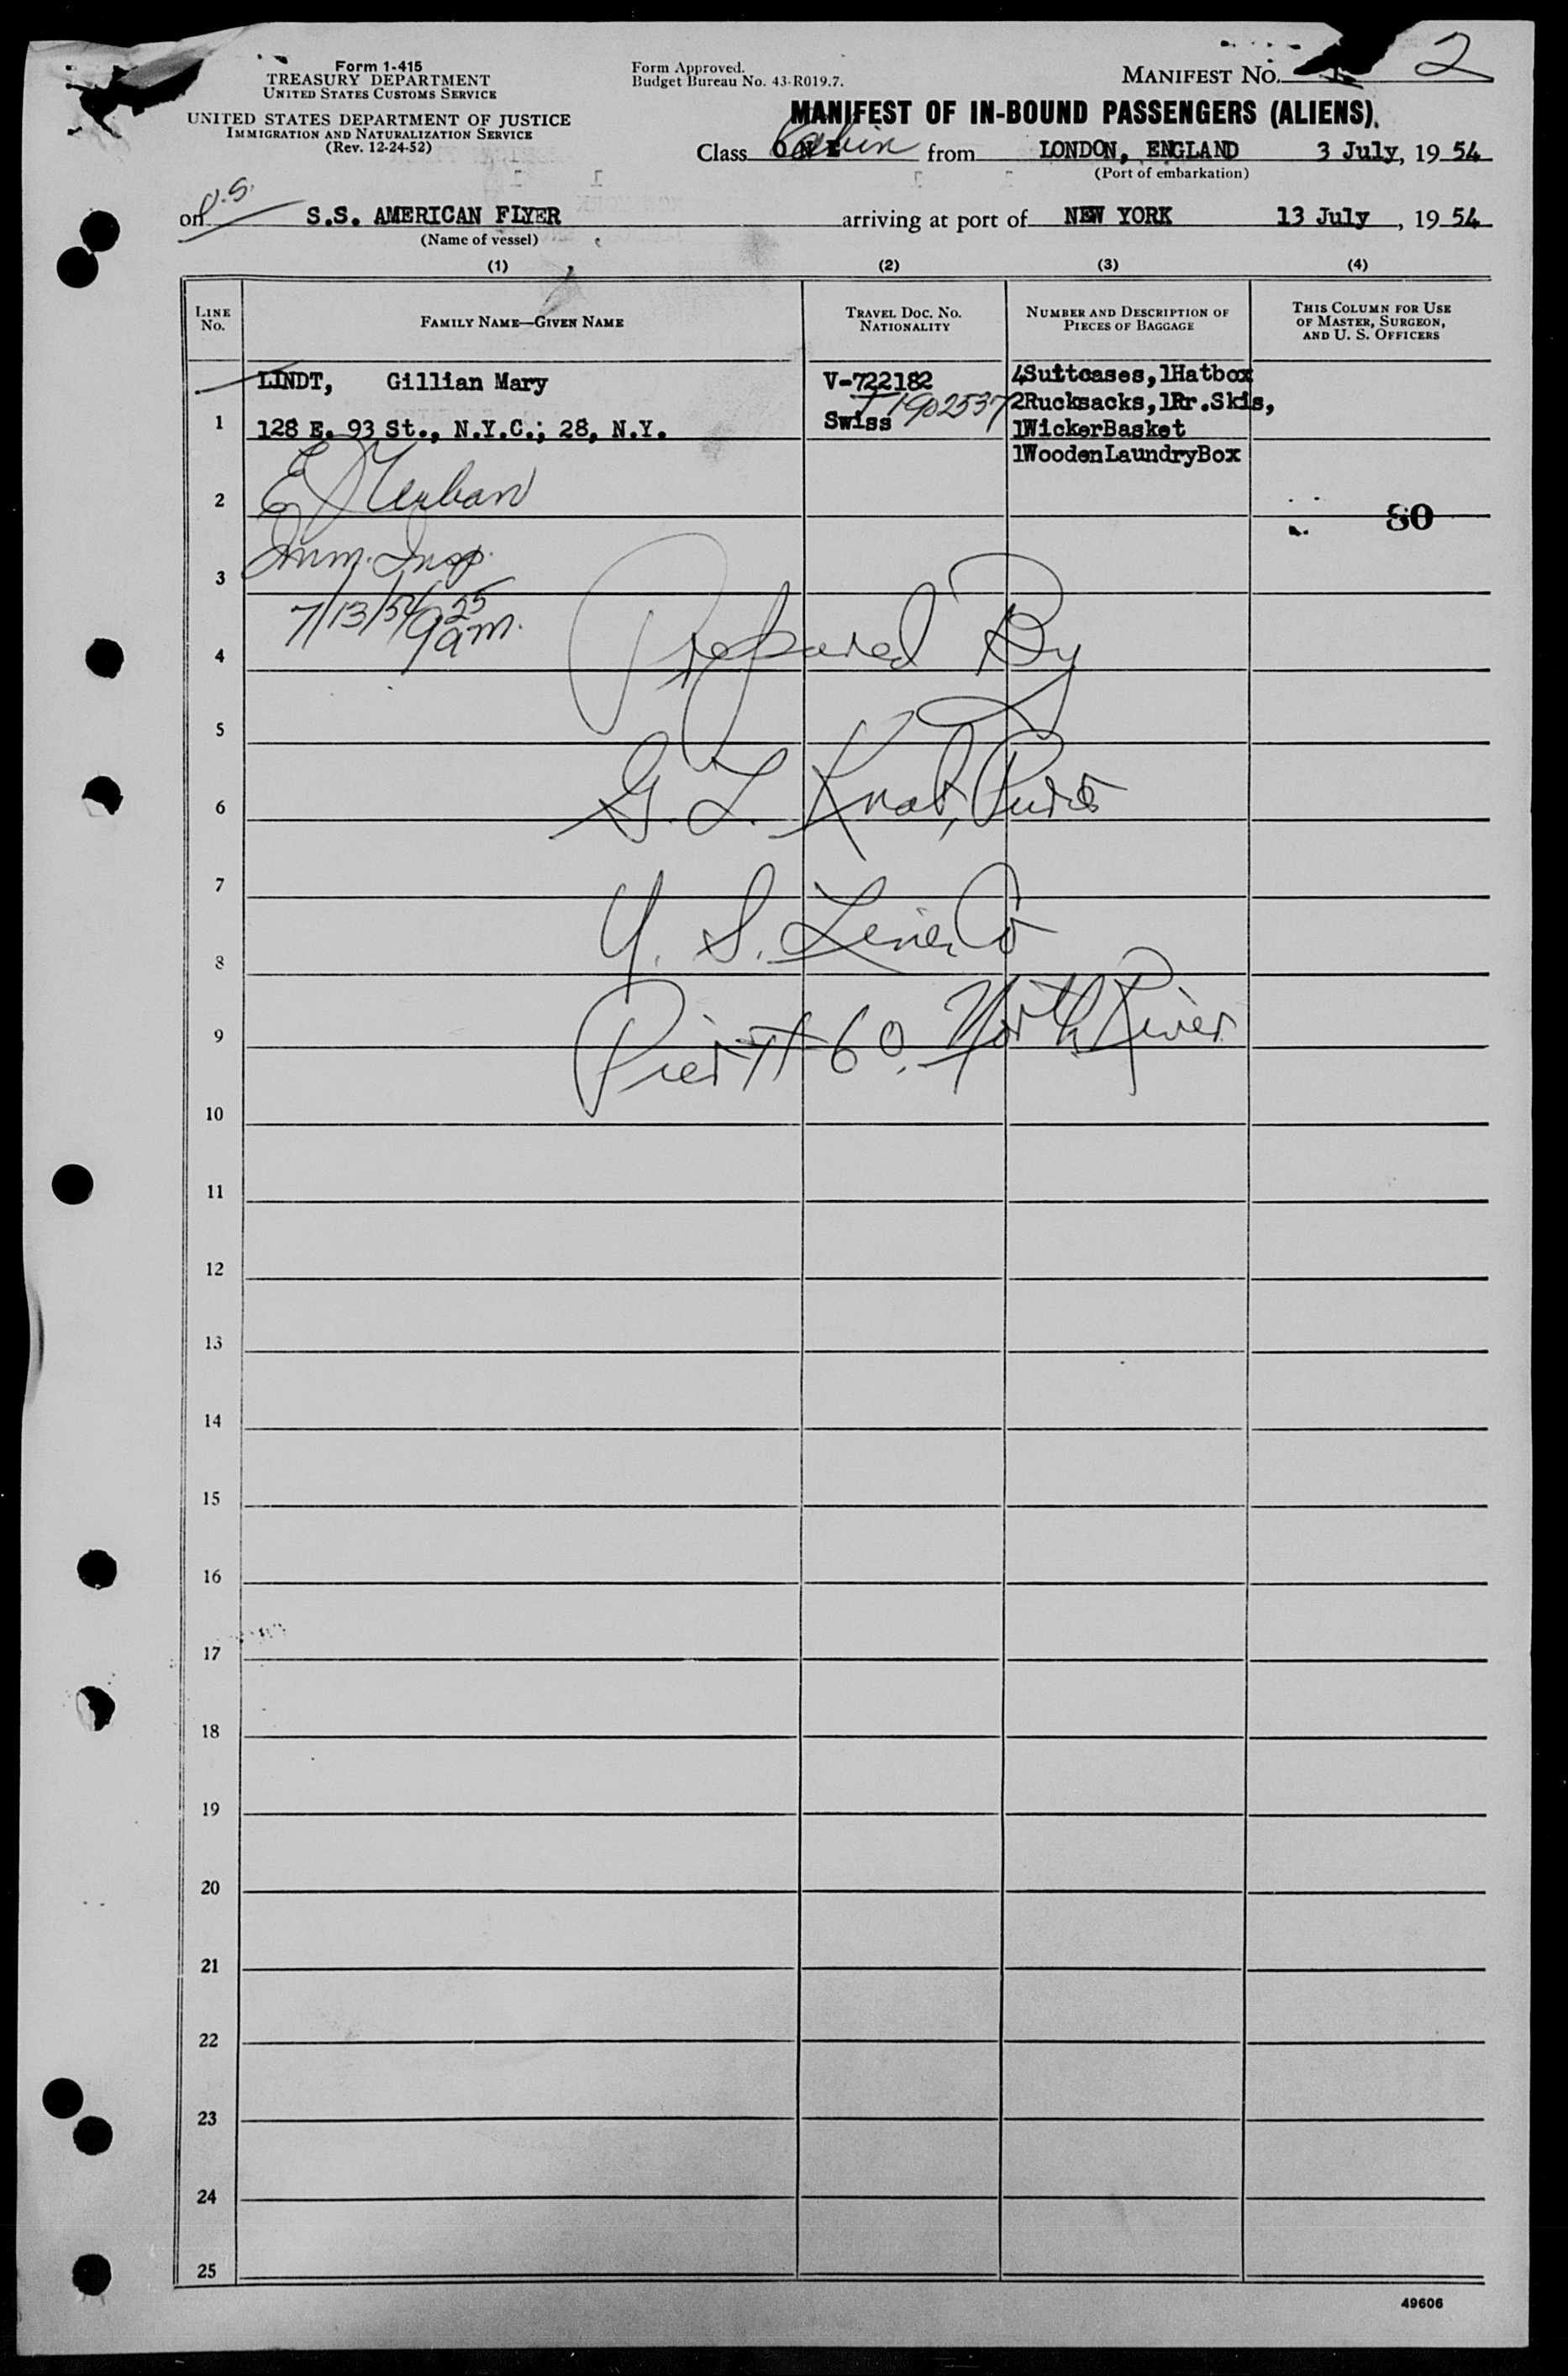 Form 1-415
TREASURY DEPARTMENT
UNITED STATES CUSTOMS SERVICE
UNITED STATES DEPARTMENT OF JUSTICE
IMMIGRATION AND NATURALIZATION SERVICE
(Rev. 12-24-52)
Form Approved.
Budget Bureau No. 43-R019.7.
MANIFEST NO. 2
MANIFEST OF IN-BOUND PASSENGERS (ALIENS)
Class Cabin from LONDON, ENGLAND 3 July, 19 54
(Port of embarkation)
on S.S. AMERICAN FLYER arriving at port of NEW YORK 13 July, 19 54
(Name of vessel)
(1) (2) (3) (4)
LINE NO.
FAMILY NAME—GIVEN NAME
TRAVEL DOC. NO.
NATIONALITY
NUMBER AND DESCRIPTION OF
PIECES OF BAGGAGE
THIS COLUMN FOR USE
OF MASTER, SURGEON,
AND U. S. OFFICERS
LINDT, Gillian Mary V-722182 4Suitcases,1Hatbox
1902537 2Rucksacks,1Pr.Skis,
1 128 E. 93 St., N.Y.C.; 28, N.Y. Swiss 1WickerBasket
1WoodenLaundryBox
2
80
Imm. Insp.
3
7/13/54 9 25 am.
Prepared By
4
5
G. L. Knab, Purser
6
7
U. S. Lines Co
8
Pier # 60, North River
9
10
11
12
13
14
15
16
17
18
19
20
21
22
23
24
25
49606